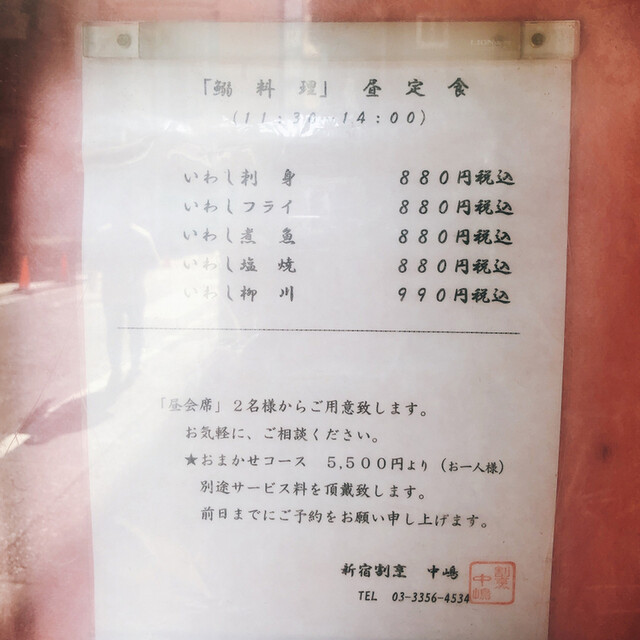 「鰯 料 理」 昼 定 食
(11:30-14:00)
いわし刺 身 880円税込
いわしフライ 880円税込
いわし煮 魚 880円税込
いわし塩 焼 880円税込
いわし柳 川 990円税込
「昼会席」２名様からご用意致します。
お気軽に、ご相談ください。
★おまかせコース 5,500円より（お一人様）
別途サービス料を頂戴致します。
前日までにご予約をお願い申し上げます。
新宿割烹 中嶋
TEL 03-3356-4534
割烹
中嶋